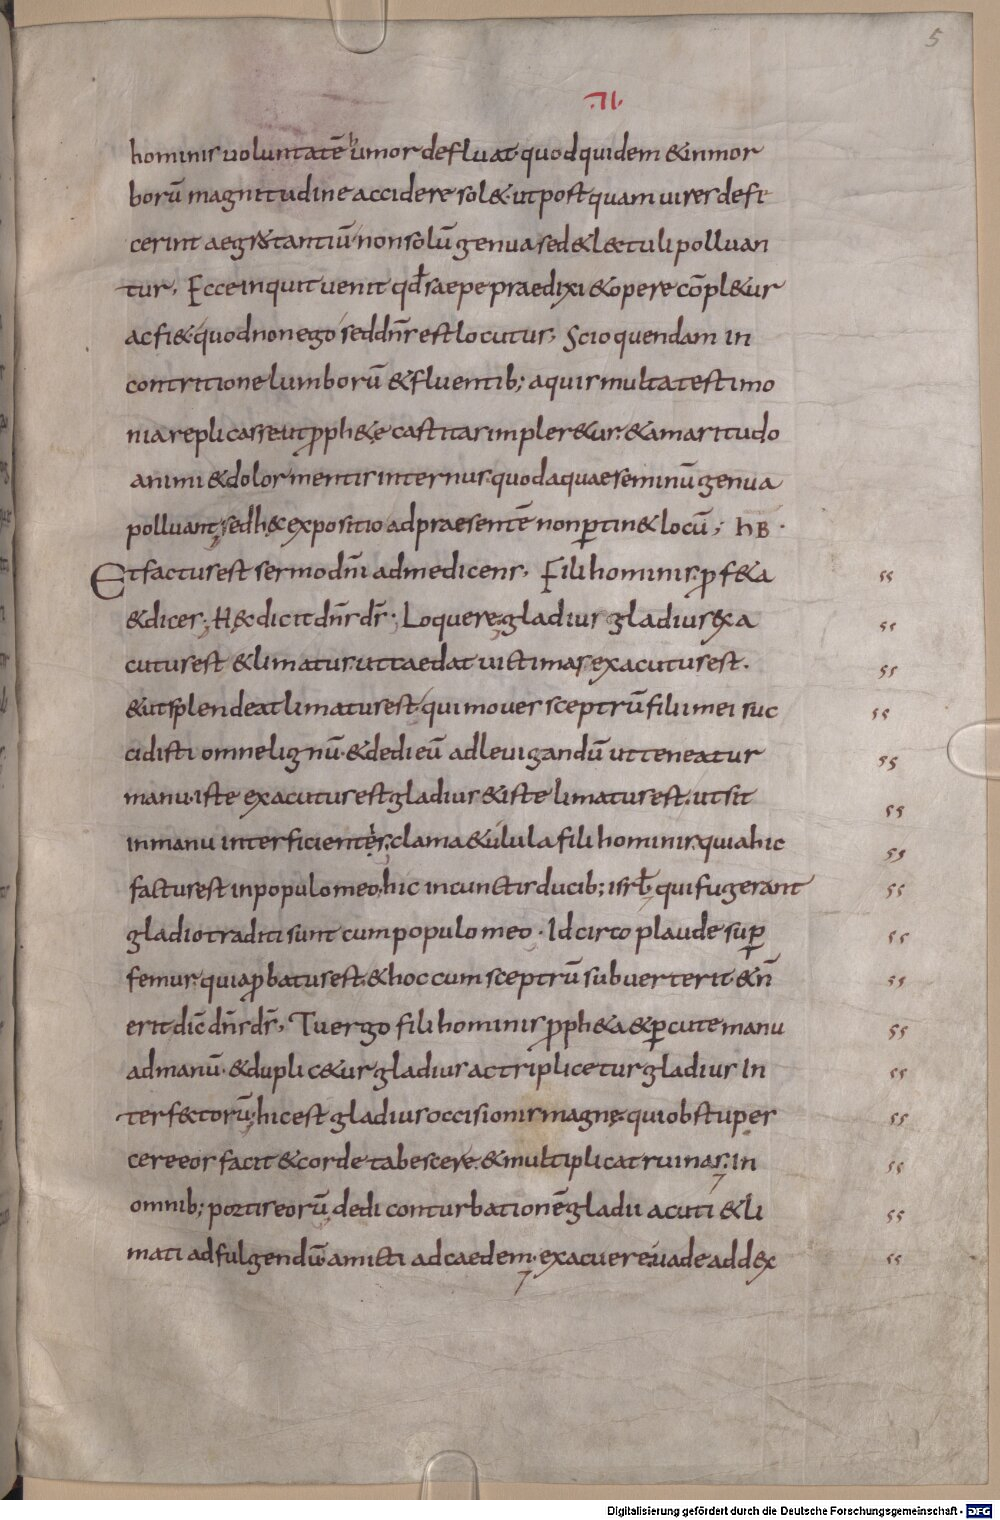 5
.VI.
hominis uoluntatē humor defluat· quod quidem & in mor
borū magnitudine accidere sol&· ut postquam uires defe
cerint aegrotantiū non solū genua sed & lectuli polluan
tur. Ecce inquit uenit qđ saepe praedixi & opere cōpl&ur
ac fi&· quod non ego sed dn̄s est locutus. Scio quendam in
contritione lumborū & fluentib; aquis multa testimo
nia replicasse ut proph&ę castitas impler&ur· & amaritudo
animi & dolor mentis internus· quod aquae seminū genua
polluant; sed h&ec expositio ad praesentē non ꝑtin& locū; hB·
Et factus est sermo dn̄i ad me dicens. Fili hominis ꝓf&a
& dices; Hęc dicit dn̄s ds̄· Loquere; gladius gladius exa
cutus est & limatus· ut caedat uictimas exacutus est.
& ut splendeat limatus est· qui moues sceptrū filii mei suc
cidisti omne lignū· & dedi eū ad leuigandū ut teneatur
manu· iste exacutus est gladius & iste limatus est· ut sit
in manu interficientis; clama & ulula fili hominis· quia hic
factus est in populo meo· hic in cunctis ducib; isrł· qui fugerant
gladio traditi sunt cum populo meo· Idcirco plaude suꝑ
femur· quia ꝓbatus est· & hoc cum sceptrū subuerterit· & n̄
erit dic̄ dn̄s ds̄. Tu ergo fili hominis ꝓph&a & ꝑcute manu
ad manū· & duplic&ur gladius ac triplicetur gladius in
terfectorū; hic est gladius occisionis magnę· qui obstupes
cere eos facit & corde tabescere & multiplicat ruinas; In
omnib; portis eorū dedi conturbationē gladii acuti & li
mati ad fulgendū· amicti ad caedem; exacuere· uade ad dex
Digitalisierung gefördert durch die Deutsche Forschungsgemeinschaft - DFG